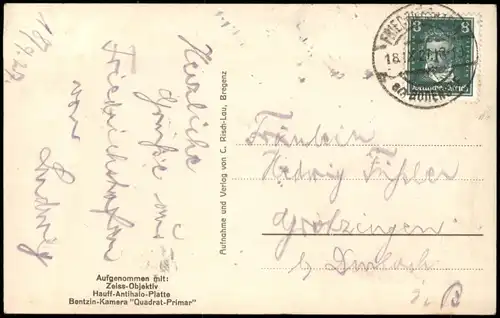 18/9.29.
Herzliche
Grüße aus
Friedrichshafen
von
Ludwig
Aufgenommen mit:
Zeiss-Objektiv
Hauff-Antihalo-Platte
Bentzin-Kamera "Quadrat-Primar"
Aufnahme und Verlag von C. Risch-Lau, Bregenz
8 8
Fräulein
Hedwig
Grötzingen
b/ Durlach
i. B